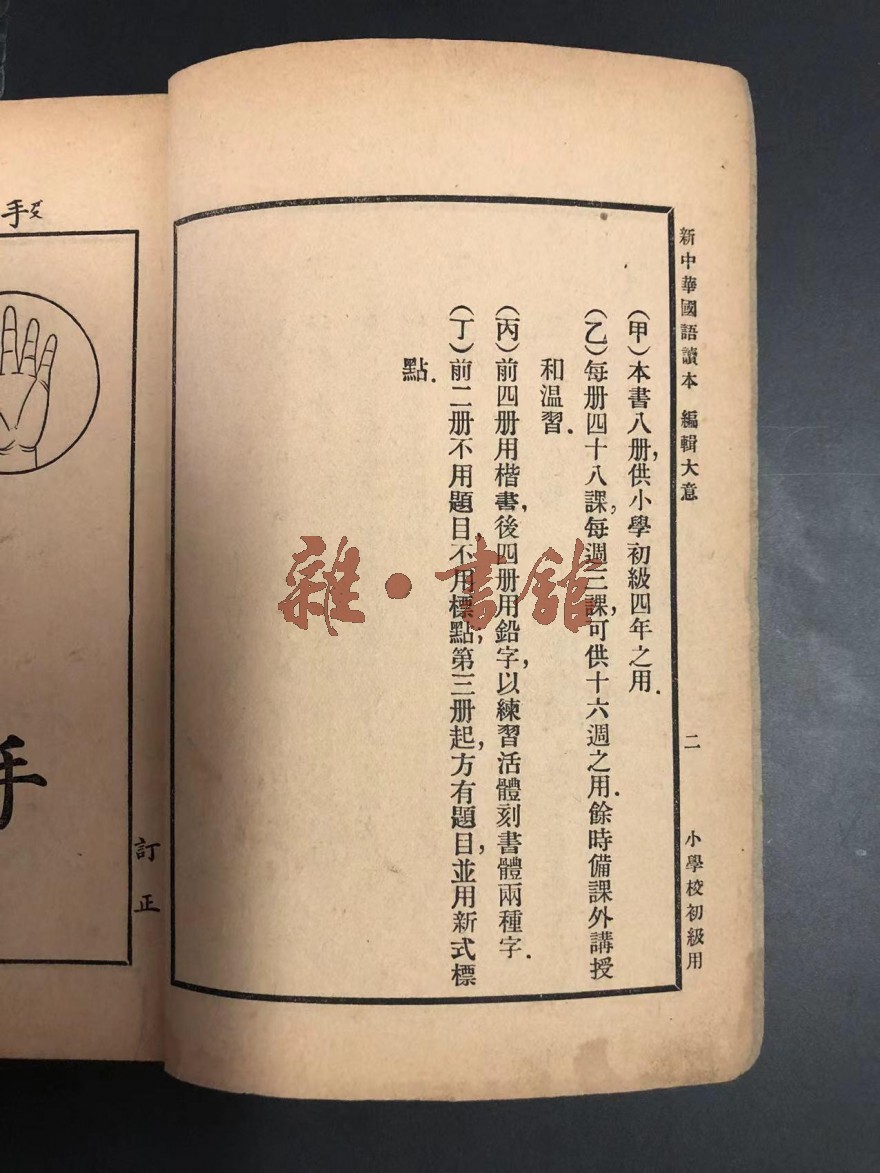 新中華國語讀本 編輯大意 二 小學校初級用
(甲)本書八册,供小學初級四年之用.
(乙)每册四十八課,每週三課,可供十六週之用.餘時備課外講授
和温習.
(丙)前四册用楷書,後四册用鉛字,以練習活體刻書體兩種字.
(丁)前二册不用題目,不用標點;第三册起,方有題目,並用新式標
點.
訂正
手
手
雜·書館